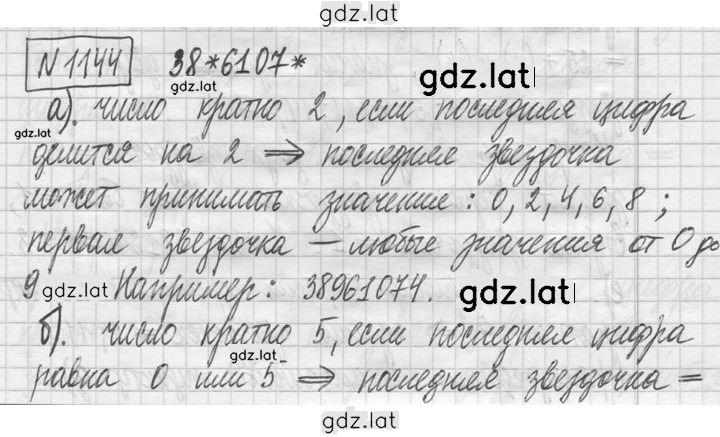 gdz.lat
N 1144 38*6107*
gdz.lat gdz.lat
а). число кратно 2, если последняя цифра
gdz.lat
делится на 2 ⇒ последняя звездочка
может принимать значение: 0, 2, 4, 6, 8;
первая звездочка — любые значения от 0 до
9 gdz.lat Например: 38961074. gdz.lat
б). число кратно 5, если последняя цифра
gdz.lat
равна 0 или 5 ⇒ последняя звездочка =
gdz.lat